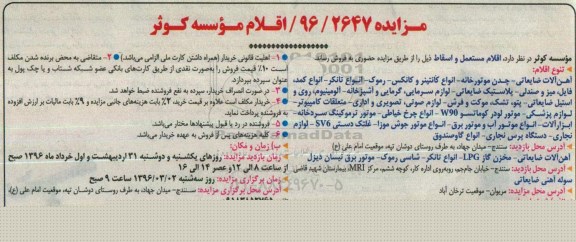 مزایده ۹۶/۲۶۴۷/ اقلام مؤسسه کوثر
مؤسسه کوثر در نظر دارد، اقلام مستعمل و اسقاط ذیل را از طریق مزایده حضوری به فروش رساند.
تنوع اقلام:
آهن‌آلات ضایعاتی- چدن موتورخانه- انواع کانتینر و کانکس- رموک- انواع تانکر- انواع کمد،
فایل، میز و صندلی- پلاستیک ضایعاتی- لوازم سرمایی، گرمایی و آشپزخانه- آلومینیوم، روی و
استیل ضایعاتی- پتو، تشک، موکت و فرش- لوازم صوتی، تصویری و اداری- متعلقات کامپیوتر-
لوازم پزشکی- موتور لودر کوماتسو W90- انواع چرخ خیاطی- موتور ترموکینگ سردخانه-
ابزارآلات- انواع موتور آب و موتور برق- انواع موتور جوش موزا- غلتک دستی SV6- لوازم
نجاری- دستگاه پرس نجاری- انواع گاوصندوق
آدرس محل بازدید: سنندج- میدان جهاد، به طرف روستای دوشان تپه، موقعیت امام علی (ع)
آهن‌آلات ضایعاتی- مخزن گاز LPG- انواع تانکر- شاسی رموک- موتور برق نیسان دیزل
آدرس محل بازدید: سنندج- خیابان جام‌جم، روبه‌روی اداره کار، کوچه ششم، مرکز MRI، بیمارستان شهید قاضی
سوله آهنی ضایعاتی
آدرس محل بازدید: مریوان- موقعیت ترخان آباد
۱- اهلیت قانونی خریدار (همراه داشتن کارت ملی الزامی می‌باشد) ۲- متقاضی به محض برنده شدن مکلف
است ۱۰٪ قیمت فروش را به‌صورت نقدی از طریق کارت‌های بانکی عضو شبکه شتاب و یا چک پول به
عنوان سپرده بپردازد.
۳- در صورت انصراف خریدار، سپرده به نفع فروشنده ضبط خواهد شد.
۴- خریدار مکلف است علاوه بر قیمت خرید، ۳٪ بابت هزینه‌های جانبی مزایده و ۹٪ بابت مالیات بر ارزش افزوده
به فروشنده پرداخت نماید.
۵- فروشنده در رد یا قبول پیشنهادها مختار می‌باشد.
۶- کلیه هزینه‌های پس از فروش به عهده خریدار می‌باشد.
زمان و مکان:
زمان بازدید مزایده: روزهای یکشنبه و دوشنبه ۳۱ اردیبهشت و اول خرداد ماه ۱۳۹۶ صبح
از ساعت ۸ الی ۱۲ و عصر ۱۴ الی ۱۶
زمان برگزاری مزایده: روز سه‌شنبه ۱۳۹۶/۰۳/۰۲ ساعت ۹ صبح
آدرس محل برگزاری مزایده: سنندج- میدان جهاد، به طرف روستای دوشان تپه، موقعیت امام علی (ع)،